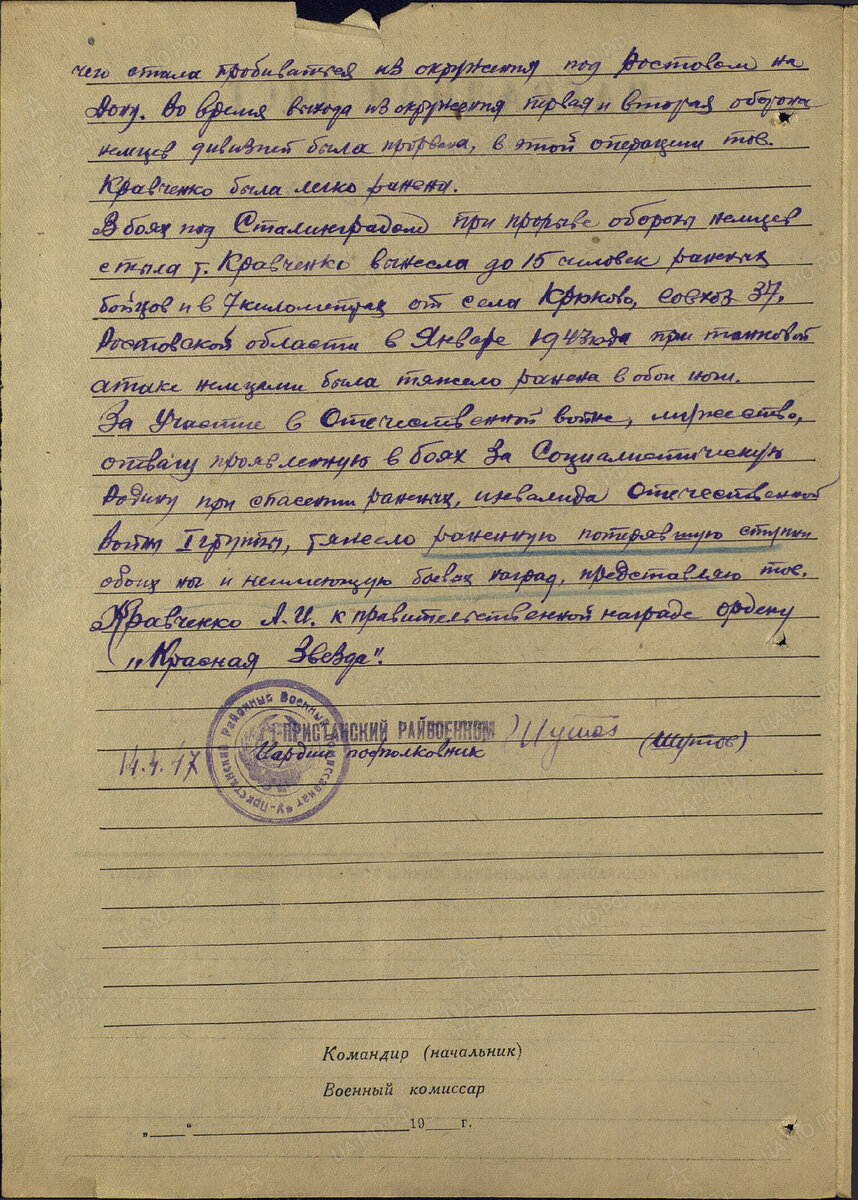 чего стала пробиваться из окружения под Ростовом на
Дону. Во время выхода из окружения первая и вторая оборона
немцев дивизией была прорвана, в этой операции тов.
Кравченко была легко ранена.
В боях под Сталинградом при прорыве обороны немцев
с тыла т. Кравченко вынесла до 15 человек раненых
бойцов и в 7 километрах от села Крюково, совхоз 37,
Ростовской области в Январе 1943 года при танковой
атаке немцами была тяжело ранена в обои ноги.
За участие в Отечественной войне, мужество,
отвагу проявленную в боях за Социалистическую
Родину при спасении раненых, инвалида Отечественной
войны I группы, тяжело раненную потерявшую ступни
обоих ног и неимеющую боевых наград, представляю тов.
Кравченко А.И. к правительственной награде ордену
„Красная Звезда".
Г-ПРИСТАНСКИЙ РАЙВОЕНКОМ
Гвардии подполковник (Шутов)
14.4.47
Районный Военный Комиссариат
Командир (начальник)
Военный комиссар
„ " 19 г.
ЦАМО.РФ
ПАМЯТЬ НАРОДА